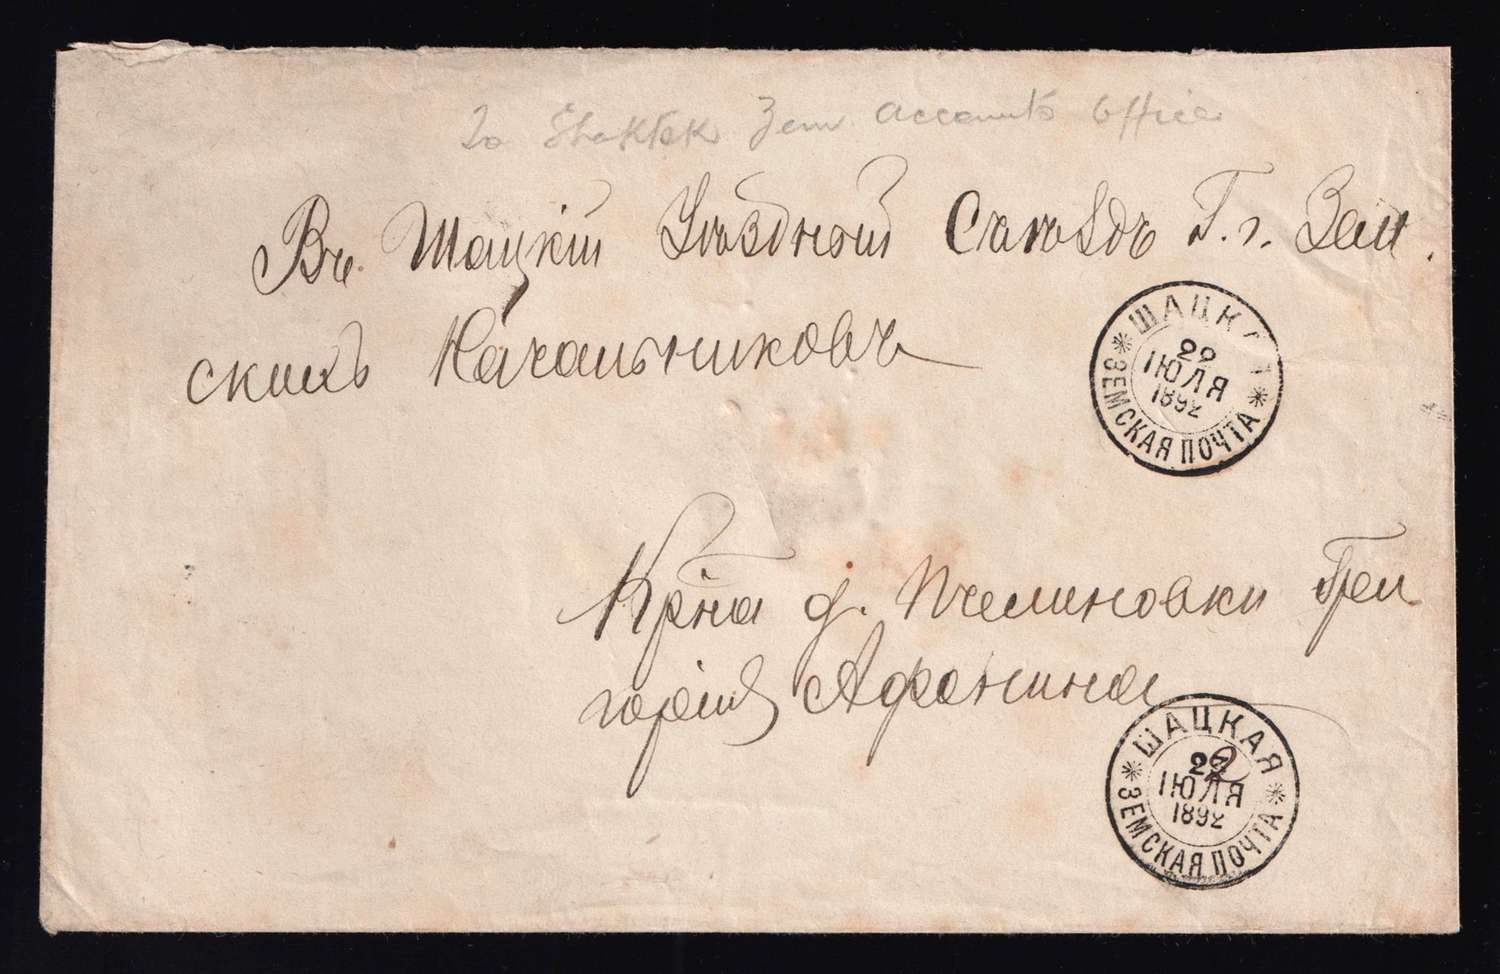 To Shaktsk Zem accounts office
Въ Шацкій Уѣздной Съѣздъ Г. г. Зем
скихъ Начальниковъ
ШАЦКАЯ
29
ІЮЛЯ
1892
ЗЕМСКАЯ ПОЧТА
Кр͞на д. Пчелиновки Гри
горія Афонина
ШАЦКАЯ
ІЮЛЯ
1892
ЗЕМСКАЯ ПОЧТА